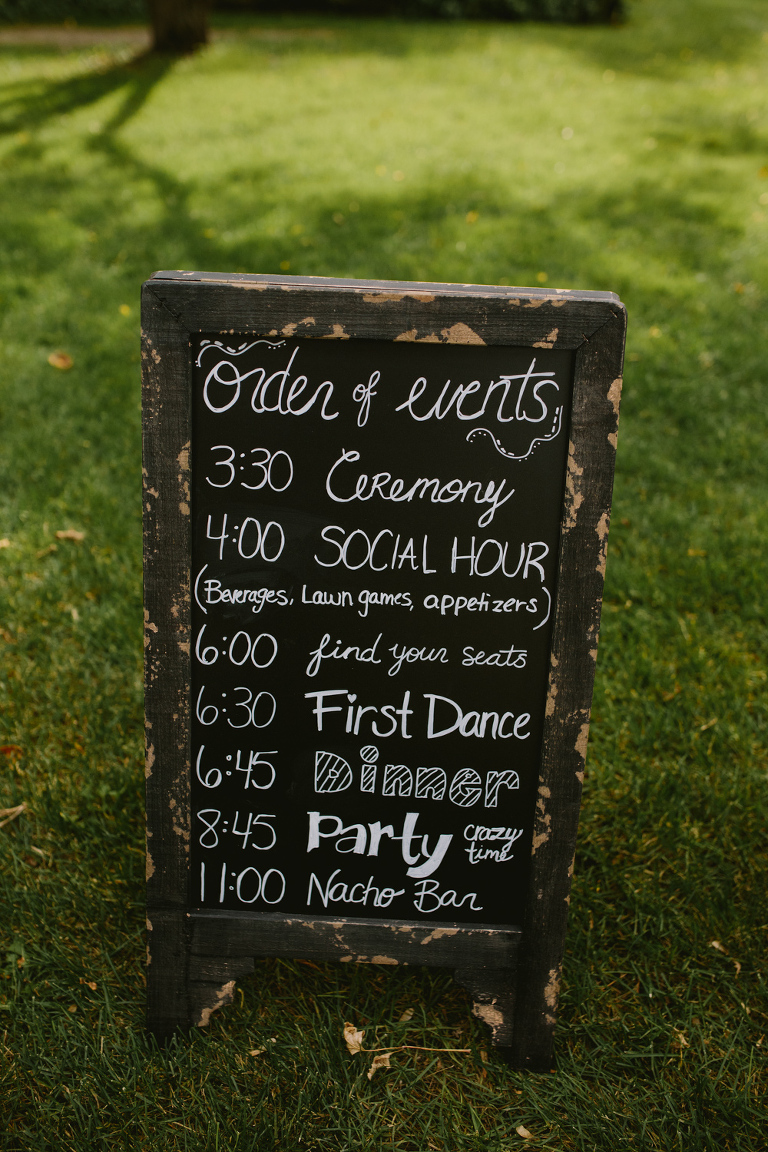 Order of events
3:30 Ceremony
4:00 SOCIAL HOUR
(Beverages, Lawn games, appetizers)
6:00 find your seats
6:30 First Dance
6:45 Dinner
8:45 Party crazy time
11:00 Nacho Bar